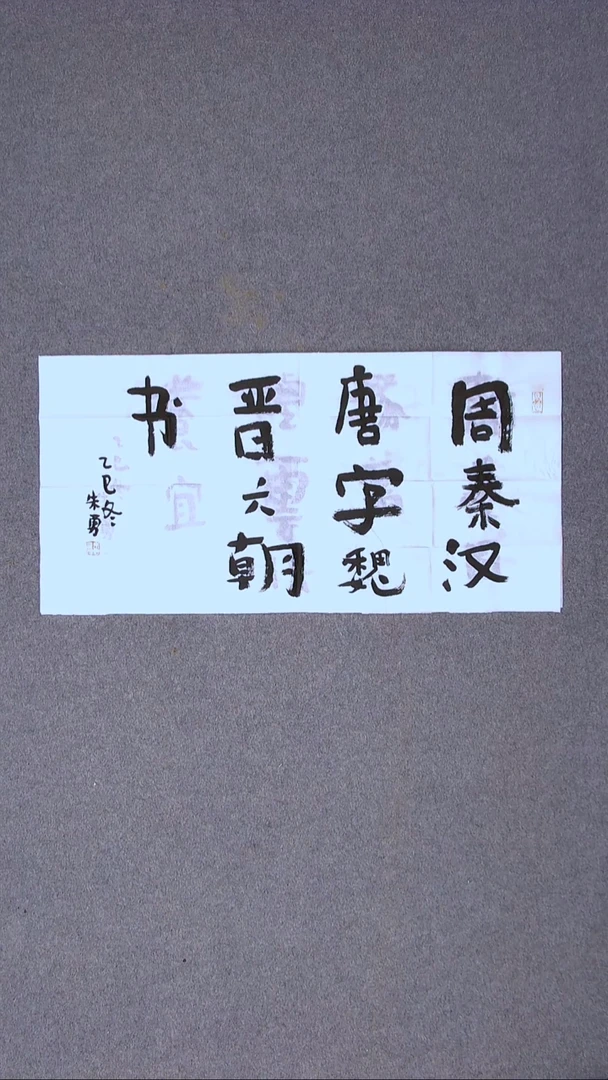 周秦汉
唐字魏
晋六朝
书
乙巳冬
朱勇